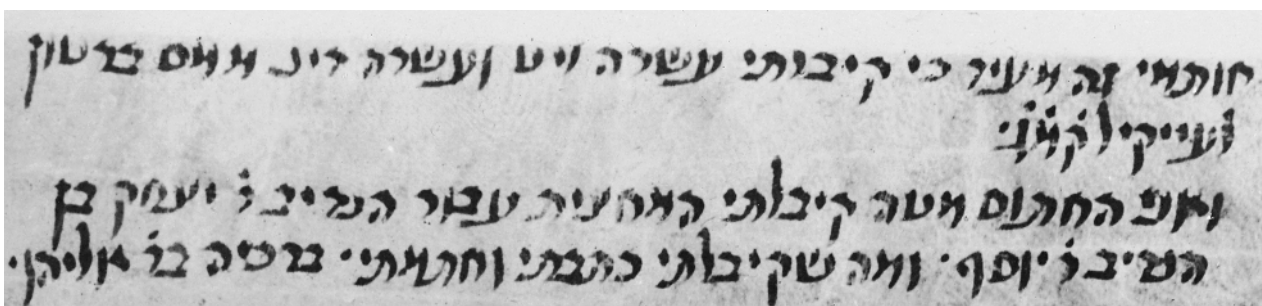 חותמי זה מעיד כי קיבלתי עשרה ליט ועשרה דינ ממס ברטון
ואני החתום מטה קיבלתי המחצית עבור הנדיב ר׳ יצחק בן
הנדיב ר׳ יוסף · ומה שקיבלתי כתבתי וחתמתי · ברכיה בר׳ אליהו ·